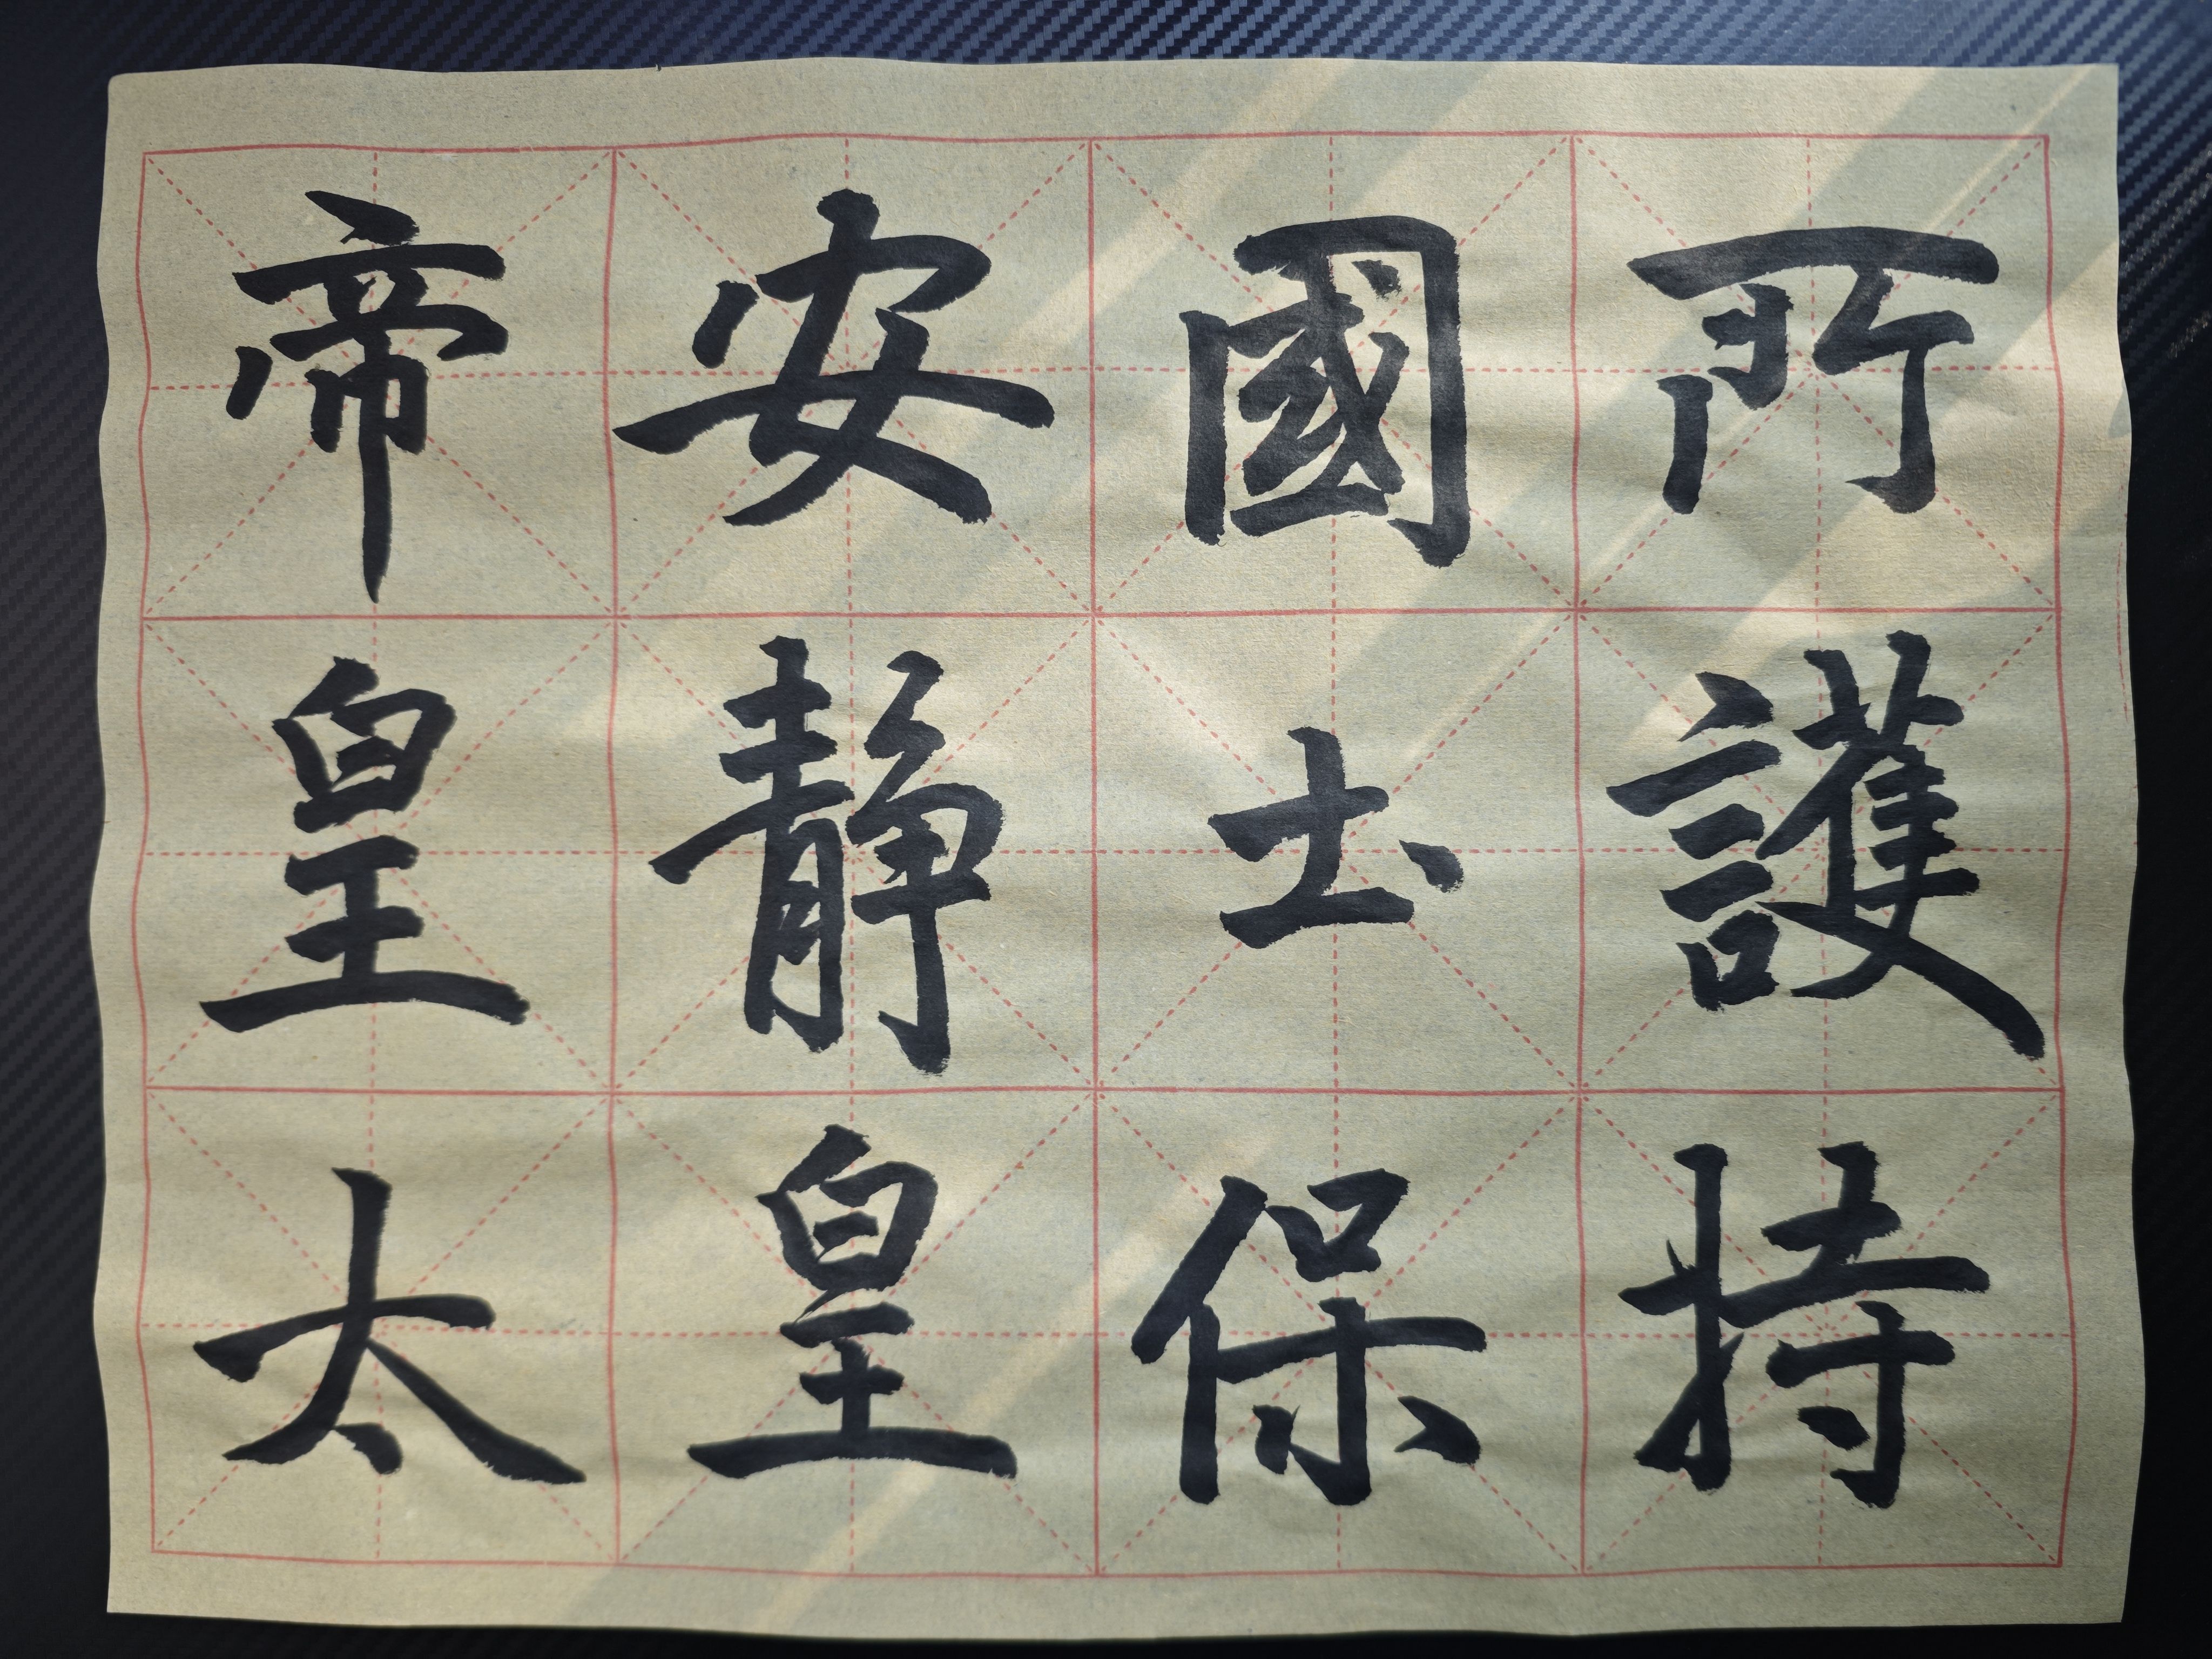 所護持
國土保
安静皇
帝皇太